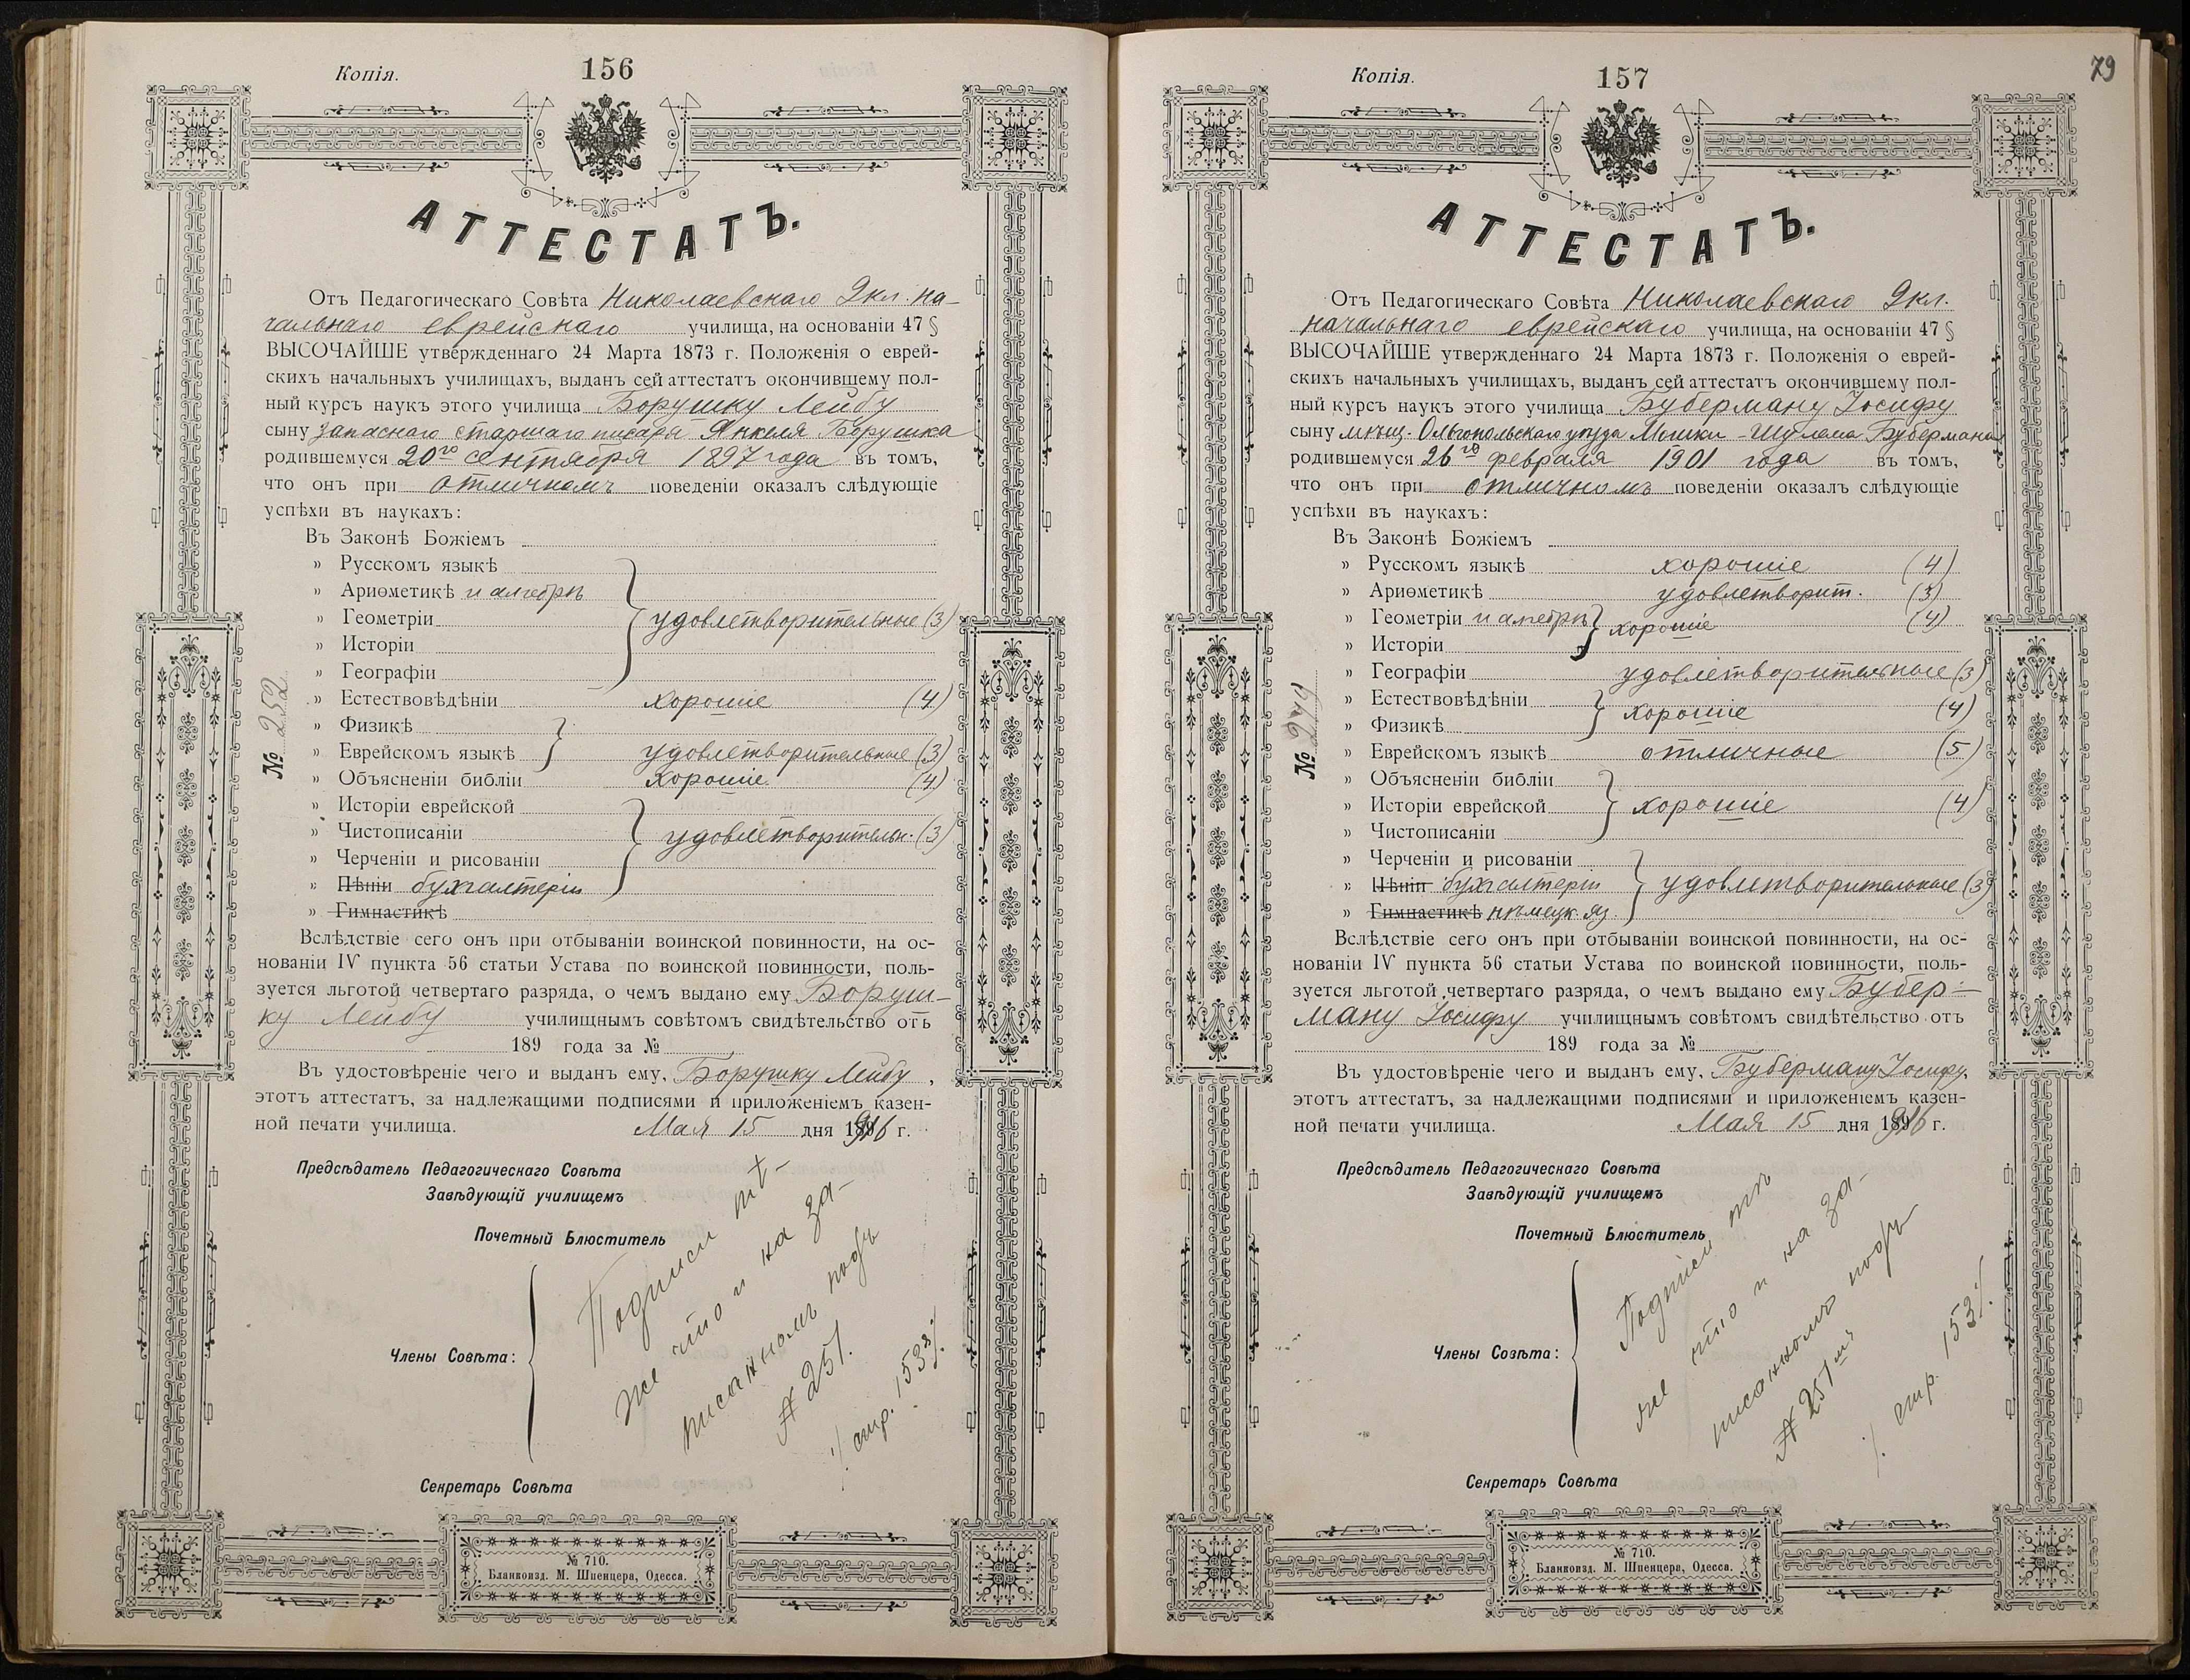 Копія.
156
АТТЕСТАТЪ.
Отъ Педагогическаго Совѣта Николаевскаго 2кл. на-
чальнаго еврейскаго училища, на основаніи 47 §
ВЫСОЧАЙШЕ утвержденнаго 24 Марта 1873 г. Положенія о еврей-
скихъ начальныхъ училищахъ, выданъ сей аттестатъ окончившему пол-
ный курсъ наукъ этого училища Борушку Лейбу
сыну запаснаго старшаго писаря Янкеля Борушка
родившемуся 20го сентября 1897 года въ томъ,
что онъ при отличномъ поведеніи оказалъ слѣдующіе
успѣхи въ наукахъ:
Въ Законѣ Божіемъ
» Русскомъ языкѣ
» Ариѳметикѣ и алгебрѣ
» Геометріи удовлетворительные (3)
» Исторіи
» Географіи
» Естествовѣдѣніи хорошіе (4)
» Физикѣ
» Еврейскомъ языкѣ удовлетворительные (3)
» Объясненіи библіи хорошіе (4)
» Исторіи еврейской
» Чистописаніи удовлетворительн. (3)
» Черченіи и рисованіи
» Пѣніи бухгалтеріи
» Гимнастикѣ
№ 252
Вслѣдствіе сего онъ при отбываніи воинской повинности, на ос-
нованіи IV пункта 56 статьи Устава по воинской повинности, поль-
зуется льготой четвертаго разряда, о чемъ выдано ему Боруш-
ку Лейбу училищнымъ совѣтомъ свидѣтельство отъ
189 года за №
Въ удостовѣреніе чего и выданъ ему, Борушку Лейбу,
этотъ аттестатъ, за надлежащими подписями и приложеніемъ казен-
ной печати училища. Мая 15 дня 1916 г.
Предсѣдатель Педагогическаго Совѣта
Завѣдующій училищемъ
Почетный Блюститель
Члены Совѣта:
Подписи тѣ-
же что и на за-
писанномъ подъ
№ 251.
·/. стр. 153 ·/.
Секретарь Совѣта
№ 710.
Бланкоизд. М. Шпенцера, Одесса.
Копія.
157
79
АТТЕСТАТЪ.
Отъ Педагогическаго Совѣта Николаевскаго 2кл.
начальнаго еврейскаго училища, на основаніи 47 §
ВЫСОЧАЙШЕ утвержденнаго 24 Марта 1873 г. Положенія о еврей-
скихъ начальныхъ училищахъ, выданъ сей аттестатъ окончившему пол-
ный курсъ наукъ этого училища Буберману Іосифу
сыну мѣщ. Ольгопольскаго уѣзда Мошки-Шулема Бубермана
родившемуся 26го февраля 1901 года въ томъ,
что онъ при отличномъ поведеніи оказалъ слѣдующіе
успѣхи въ наукахъ:
Въ Законѣ Божіемъ
» Русскомъ языкѣ хорошіе (4)
» Ариѳметикѣ удовлетворит. (3)
» Геометріи и алгебрѣ хорошіе (4)
» Исторіи
» Географіи удовлетворительные (3)
» Естествовѣдѣніи хорошіе (4)
» Физикѣ
» Еврейскомъ языкѣ отличные (5)
» Объясненіи библіи
» Исторіи еврейской хорошіе (4)
» Чистописаніи
» Черченіи и рисованіи
» Пѣніи бухгалтеріи удовлетворительные (3)
» Гимнастикѣ нѣмецк. яз.
№
Вслѣдствіе сего онъ при отбываніи воинской повинности, на ос-
нованіи IV пункта 56 статьи Устава по воинской повинности, поль-
зуется льготой четвертаго разряда, о чемъ выдано ему Бубер-
ману Іосифу училищнымъ совѣтомъ свидѣтельство отъ
189 года за №
Въ удостовѣреніе чего и выданъ ему, Буберману Іосифу,
этотъ аттестатъ, за надлежащими подписями и приложеніемъ казен-
ной печати училища. Мая 15 дня 1916 г.
Предсѣдатель Педагогическаго Совѣта
Завѣдующій училищемъ
Почетный Блюститель
Члены Совѣта:
Подписи тѣ
же что и на за-
писанномъ подъ
№ 251мъ
·/. стр. 153 ·/.
Секретарь Совѣта
№ 710.
Бланкоизд. М. Шпенцера, Одесса.